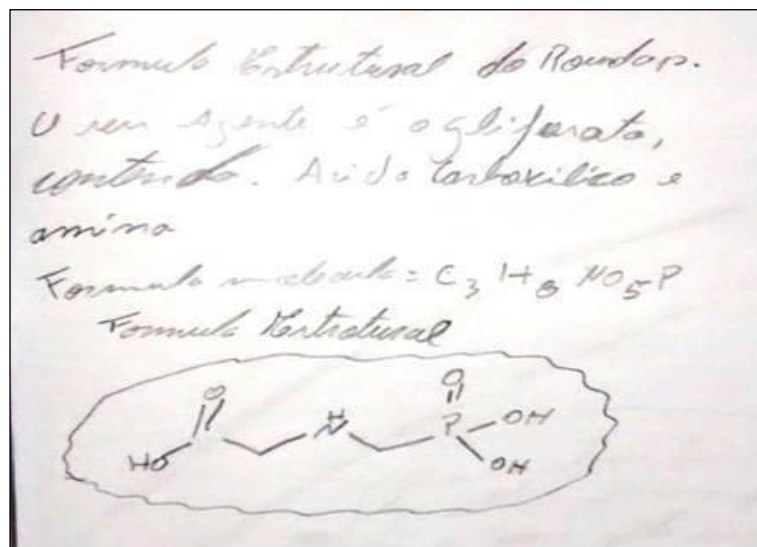 Formula Estrutural do Roundap.
O seu agente é o glifosato,
contendo. Acido Carboxilico e
amina
Formula molecula = C3 H8 NO5P
Formula Estrutural
O O
H
HO N P OH
OH